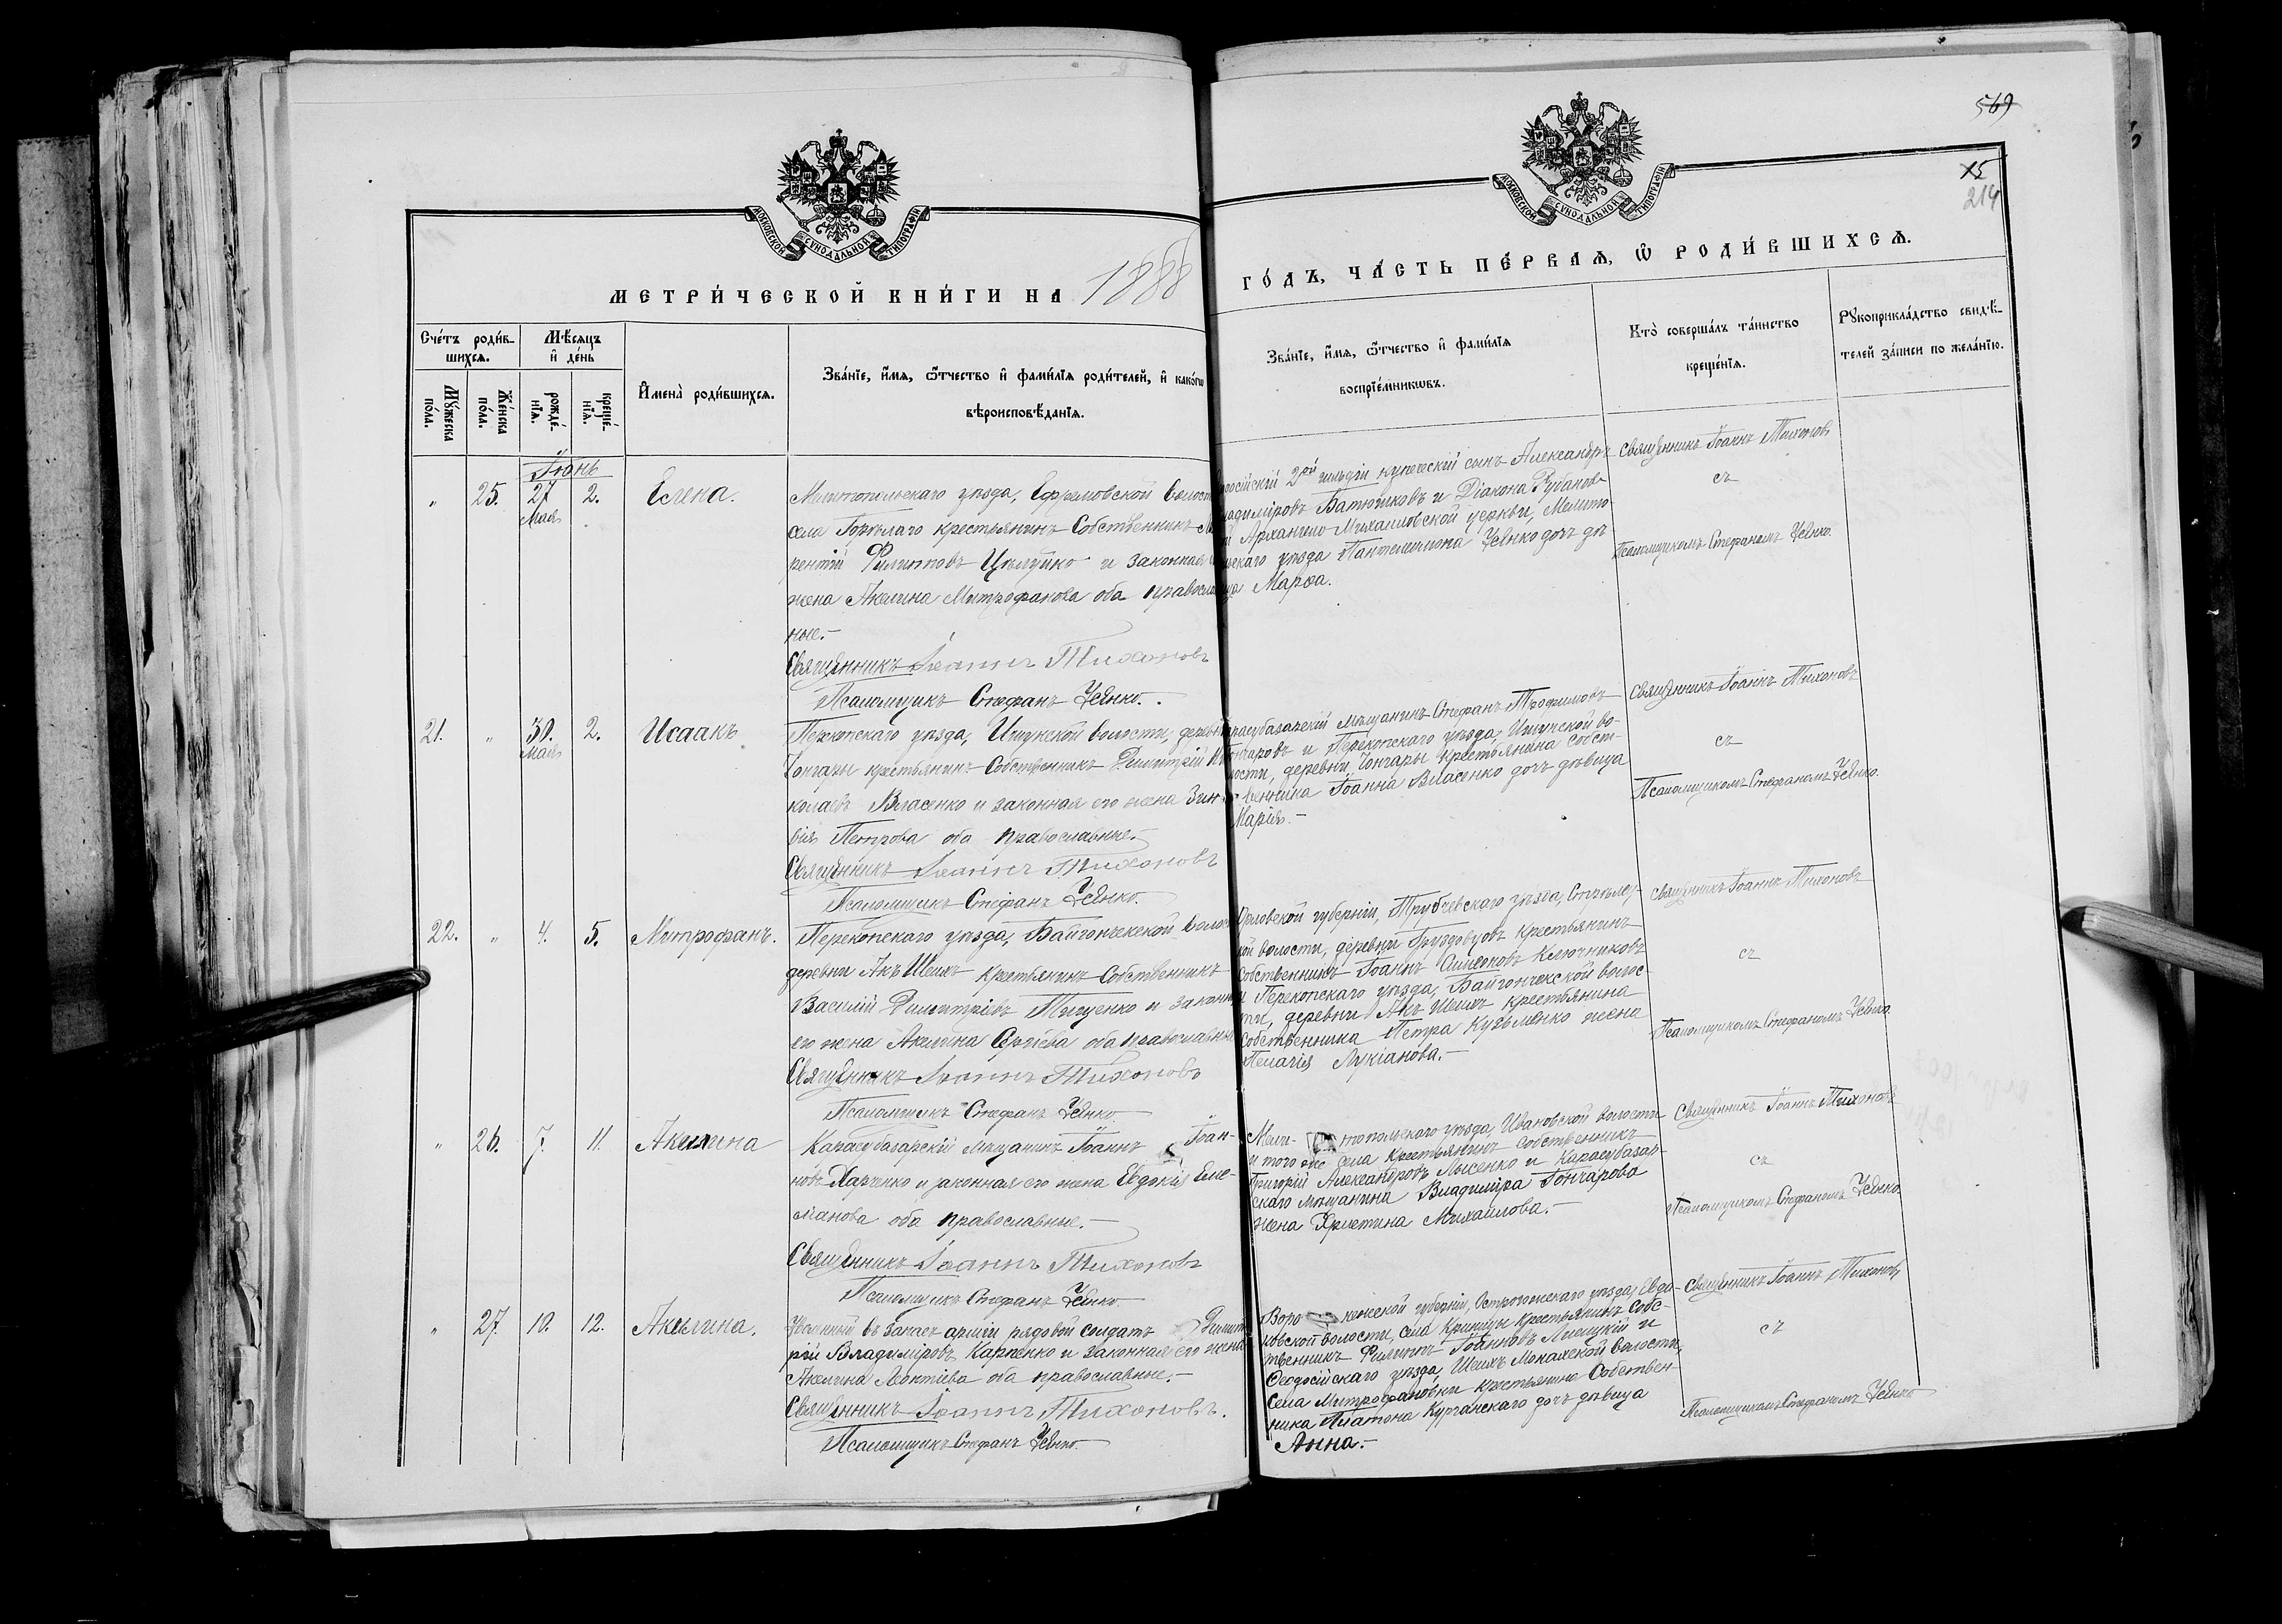 569
15
214
МОСКОВСКОЙ СѴНОДАЛЬНОЙ ТИПОГРАФІИ
МОСКОВСКОЙ СѴНОДАЛЬНОЙ ТИПОГРАФІИ
МЕТРИ́ЧЕСКОЙ КНИ́ГИ НА 1888
ГО́ДЪ, ЧА́СТЬ ПЕ́РВАѦ, Ѡ҆ РОДИ́ВШИХСѦ.
Сче́тъ роди́в-
шихсѧ.
Мꙋ́жеска по́ла.
Же́нска по́ла.
Мѣ́сѧцъ
и҆ де́нь
рожде́-
нїѧ.
креще́-
нїѧ.
И҆мена̀ роди́вшихсѧ.
Зва́нїе, и҆́мѧ, ѻ҆́тчество и҆ фами́лїѧ роди́телей, и҆ како́гѡ
вѣроисповѣ́данїѧ.
Зва́нїе, и҆́мѧ, ѻ҆́тчество и҆ фами́лїѧ
воспрїе́мникѡвъ.
Кто̀ соверша́лъ та́инство
креще́нїѧ.
Рꙋкоприкла́дство свидѣ́-
телей за́писи по жела́нїю.
Іюнь
" 25. 27 Мая 2. Елена.
Мелитопольскаго уѣзда, Ефремовской волост
села Горѣлаго крестьянинъ Собственникъ
рентій Филиповъ Цѣлуйко и законная
жена Акелина Митрофанова оба православ
ные.-
Священникъ Іоаннъ Тихоновъ
Псаломщикъ Стефанъ Уенко.
2ой гильдіи купеческій сынъ Александръ
Батюшковъ и Діакона Рубанов-
Архангело-Михайловской церкви, Мелито
уѣзда Пантелеимона Уенко дочь дѣ
ца Марѳа.
Священникъ Іоаннъ Тихоновъ
съ
Псаломщикомъ Стефаномъ Уенко.
21. " 30. Мая 2. Исаакъ
Перекопскаго уѣзда, Ишунской волости, деревни
Чонгары крестьянинъ Собственникъ Димитрій Ни
колаевъ Власенко и законная его жена Зино
вія Петрова оба православные.-
Священникъ Іоаннъ Тихоновъ
Псаломщикъ Стефанъ Уенко.
расубазарскій мѣщанинъ Стефанъ Трофимовъ
Гончаровъ и Перекопскаго уѣзда, Ишунской во-
лости, деревни Чонгары крестьянина Собст-
венника Іоанна Власенко дочь дѣвица
Марія.-
Священникъ Іоаннъ Тихоновъ
съ
Псаломщикомъ Стефаномъ Уенко.
22. " 4. 5. Митрофанъ.
Перекопскаго уѣзда, Байгончекской волос
деревни Акъ Шеихъ крестьянинъ Собственникъ
Василій Димитріевъ Тищенко и законн
его жена Акелина Сергіева оба православные
Священникъ Іоаннъ Тихоновъ
Псаломщикъ Стефанъ Уенко.
Орловской губерніи, Трубчевскаго уѣзда,
кой волости, деревни крестьянинъ
Собственникъ Іоаннъ Симеоновъ Ключниковъ
и Перекопскаго уѣзда, Байгончекской волос-
ти, деревни Акъ Шеихъ крестьянина
Собственника Петра Кузьменко жена
Пелагія Лукіанова.-
Священникъ Іоаннъ Тихоновъ
съ
Псаломщикомъ Стефаномъ Уенко.
" 26. 7. 11. Акилина
Карасубазарскій мѣщанинъ Іоаннъ Іоан-
новъ Харченко и законная его жена Евдокія Еме-
ліанова оба православные.-
Священникъ Іоаннъ Тихоновъ
Псаломщикъ Стефанъ Уенко.
Мели-топольскаго уѣзда, Ивановской волости
и того же села крестьянинъ Собственникъ
Григорій Александровъ Лысенко и Карасубазар-
скаго мѣщанина Владиміра Гончарова
жена Христина Михайлова.-
Священникъ Іоаннъ Тихоновъ
съ
Псаломщикомъ Стефаномъ Уенко.
" 27. 10. 12. Акилина.
Уволенный въ запасъ арміи рядовой солдатъ Димит-
рій Владиміровъ Карпенко и законная его жена
Акелина Леонтіева оба православные.-
Священникъ Іоаннъ Тихоновъ.
Псаломщикъ Стефанъ Уенко.
Воро-нежской губерніи, Острогожскаго уѣзда, Евдо-
ковской волости, села Криницы крестьянинъ Собс-
твенникъ Филиппъ Іоанновъ и
Ѳеодосійскаго уѣзда, Шеихъ Монахской волости,
села Митрофановки крестьянина Собствен-
ника Платона Курганскаго дочь дѣвица
Анна.-
Священникъ Іоаннъ Тихоновъ
съ
Псаломщикомъ Стефаномъ Уенко